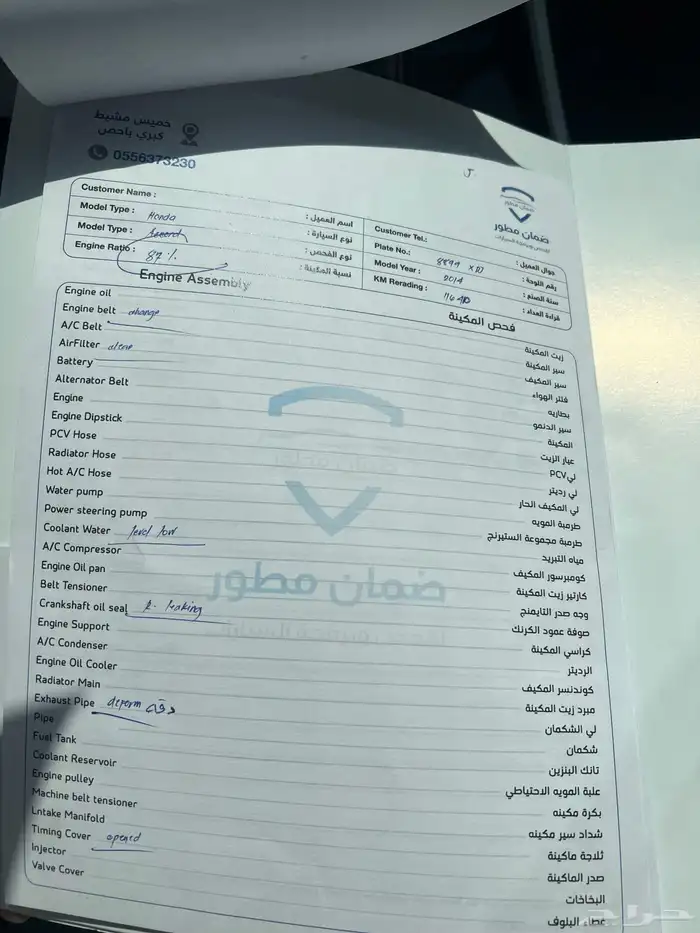 خميس مشيط
كبري باحص
0556373230
ضمان مطور
Customer Name : اسم العميل :
Customer Tel.: جوال العميل :
Model Type : Honda نوع السيارة :
Plate No.: رقم اللوحة :
Model Type : Accord نوع الفحص :
Model Year : 2014 سنة الصنع :
Engine Ratio : 87 % نسبة المكينة :
KM Rerading : قراءة العداد :
Engine Assembly فحص المكينة
Engine oil زيت المكينة
Engine belt change سير المكينة
A/C Belt سير المكيف
AirFilter clean فلتر الهواء
Battery بطاريه
Alternator Belt سير الدنمو
Engine المكينة
Engine Dipstick عيار الزيت
PCV Hose لي PCV
Radiator Hose لي رديتر
Hot A/C Hose لي المكيف الحار
Water pump طرمبة المويه
Power steering pump طرمبة مجموعة الستيرنج
Coolant Water level low مياه التبريد
A/C Compressor كومبرسور المكيف
Engine Oil pan كارتير زيت المكينة
Belt Tensioner وجه صدر التايمنج
Crankshaft oil seal R. leaking صوفة عمود الكرنك
Engine Support كراسي المكينة
A/C Condenser الرديتر
Engine Oil Cooler كوندنسر المكيف
Radiator Main مبرد زيت المكينة
Exhaust Pipe deform دقة لي الشكمان
Pipe شكمان
Fuel Tank تانك البنزين
Coolant Reservoir علبة المويه الاحتياطي
Engine pulley بكرة مكينه
Machine belt tensioner شداد سير مكينه
Lntake Manifold ثلاجة ماكينة
Timing Cover opened صدر الماكينة
Injector البخاخات
Valve Cover غطاء البلوف
ضمان مطور
حراج